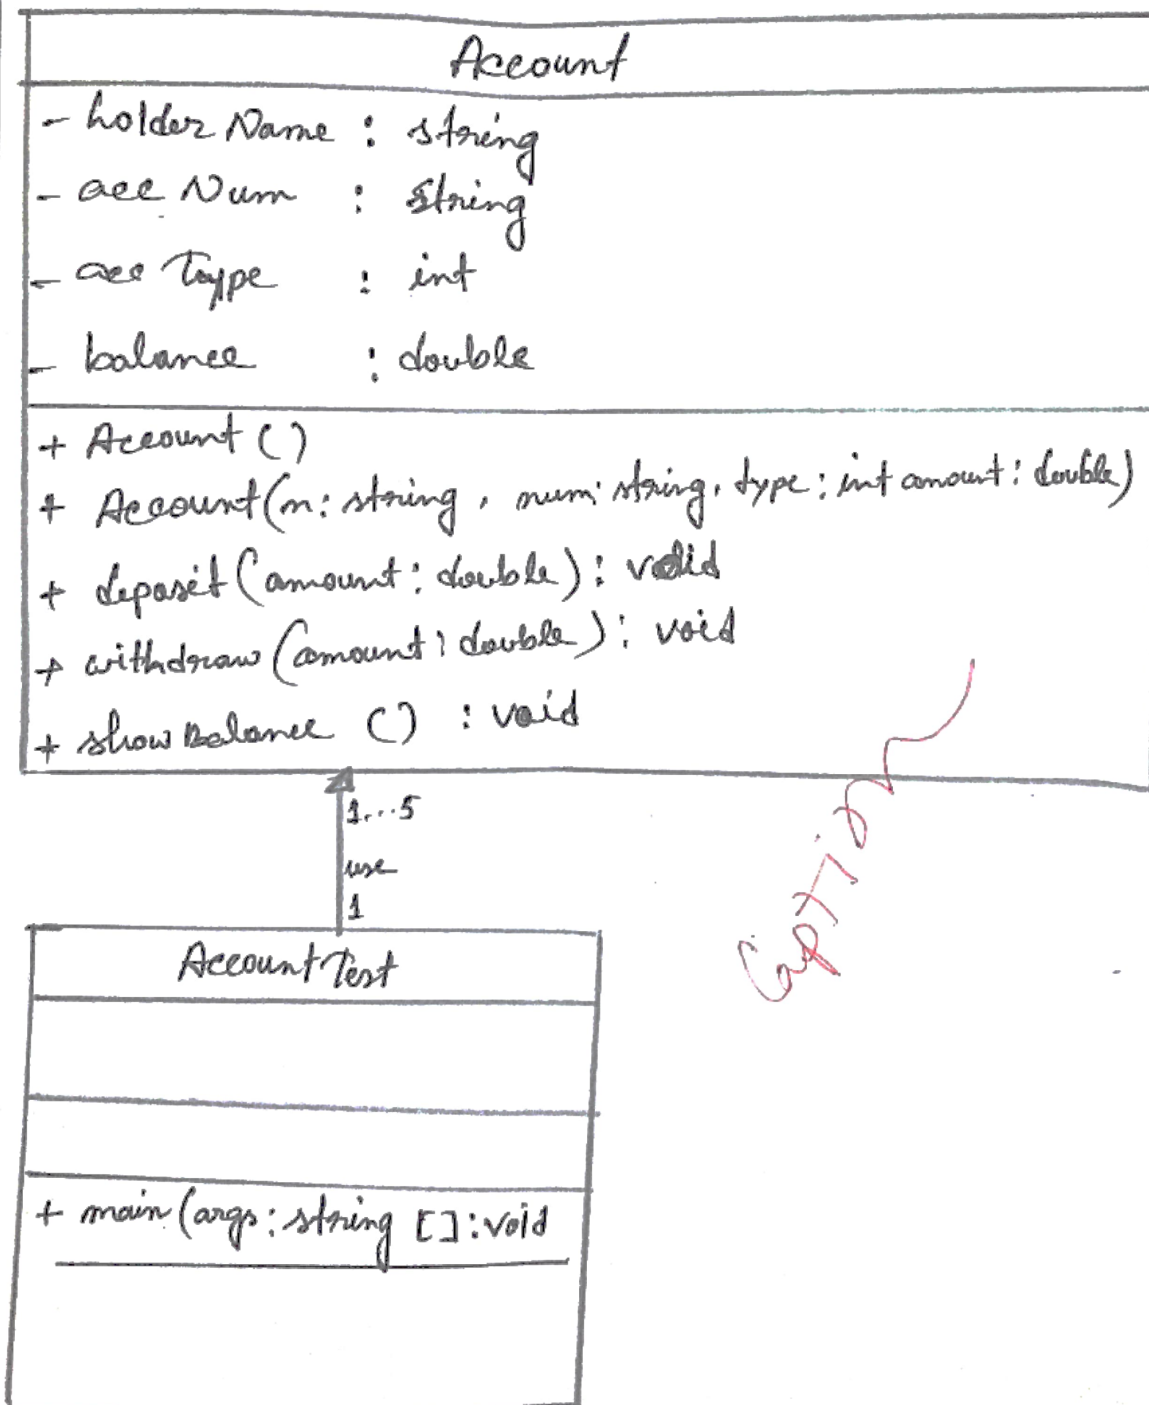 Account
- holder Name : string
- acc Num : string
- acc Type : int
- balance : double
+ Account ()
+ Account (n: string, num: string, type: int amount: double)
+ deposit (amount: double) : void
+ withdraw (amount: double) : void
+ show Balance () : void
1...5
use
1
Caption
Account Test
+ main (args: string []: void